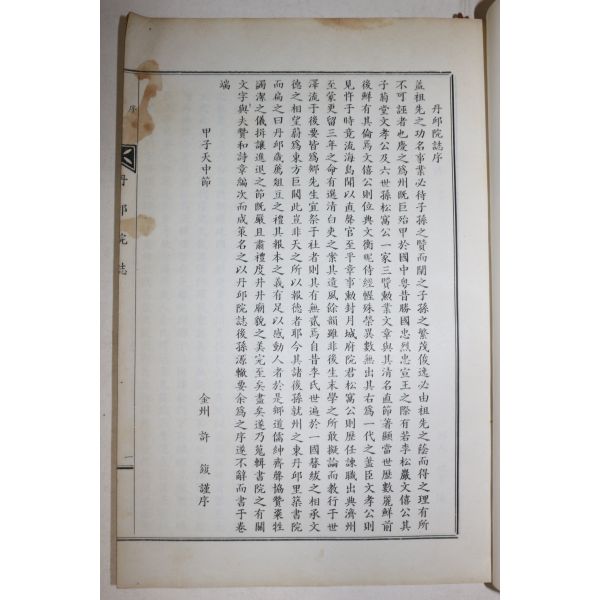 丹邱院誌序
盖祖先之功名事業必待子孫之賢而闡之子孫之繁茂俊逸必由祖先之蔭而得之理有所
不可誣者也慶之爲州旣巨殆甲於國中粤昔勝國忠烈忠宣王之際有若李松巖文僖公其
子菊堂文孝公及六世孫松窩公一家三賢勳業文章與其清名直節著顯當世歷數麗鮮前
後鮮有其倫焉文僖公則位典文衡昵侍經幄殊榮異數無出其右爲一代之藎臣文孝公則
見忤于時竟流海島聞以直聲官至平章事勳封月城府院君松窩公則歷任諫職出典濟州
至蒙更留三年之命有選清白吏之案其遺風餘韻雖非後生末學之所敢擬論而教行于世
澤流于後要皆爲鄕先生宜祭于社者則其有無貳焉自昔李氏世遍於一國簪紱之相承文
德之相望蔚爲東方巨閥此豈非天之所以報德者耶今其諸後孫就州之東丹邱里築書院
而扁之曰丹邱歲薦俎豆之禮其報本之義有足以感動人者於是鄕道儒紳齊聲協贊粢牲
蠲潔之儀揖讓進退之節旣嚴且肅禮度井井廟貌之美完至矣盡矣遂乃蒐輯書院之有關
文字與夫贊和詩章編次而成策名之以丹邱院誌後孫源轍要余爲之序遂不辭而書于卷
端
甲子天中節
金州 許 鍑 謹序
序
丹邱院誌
一